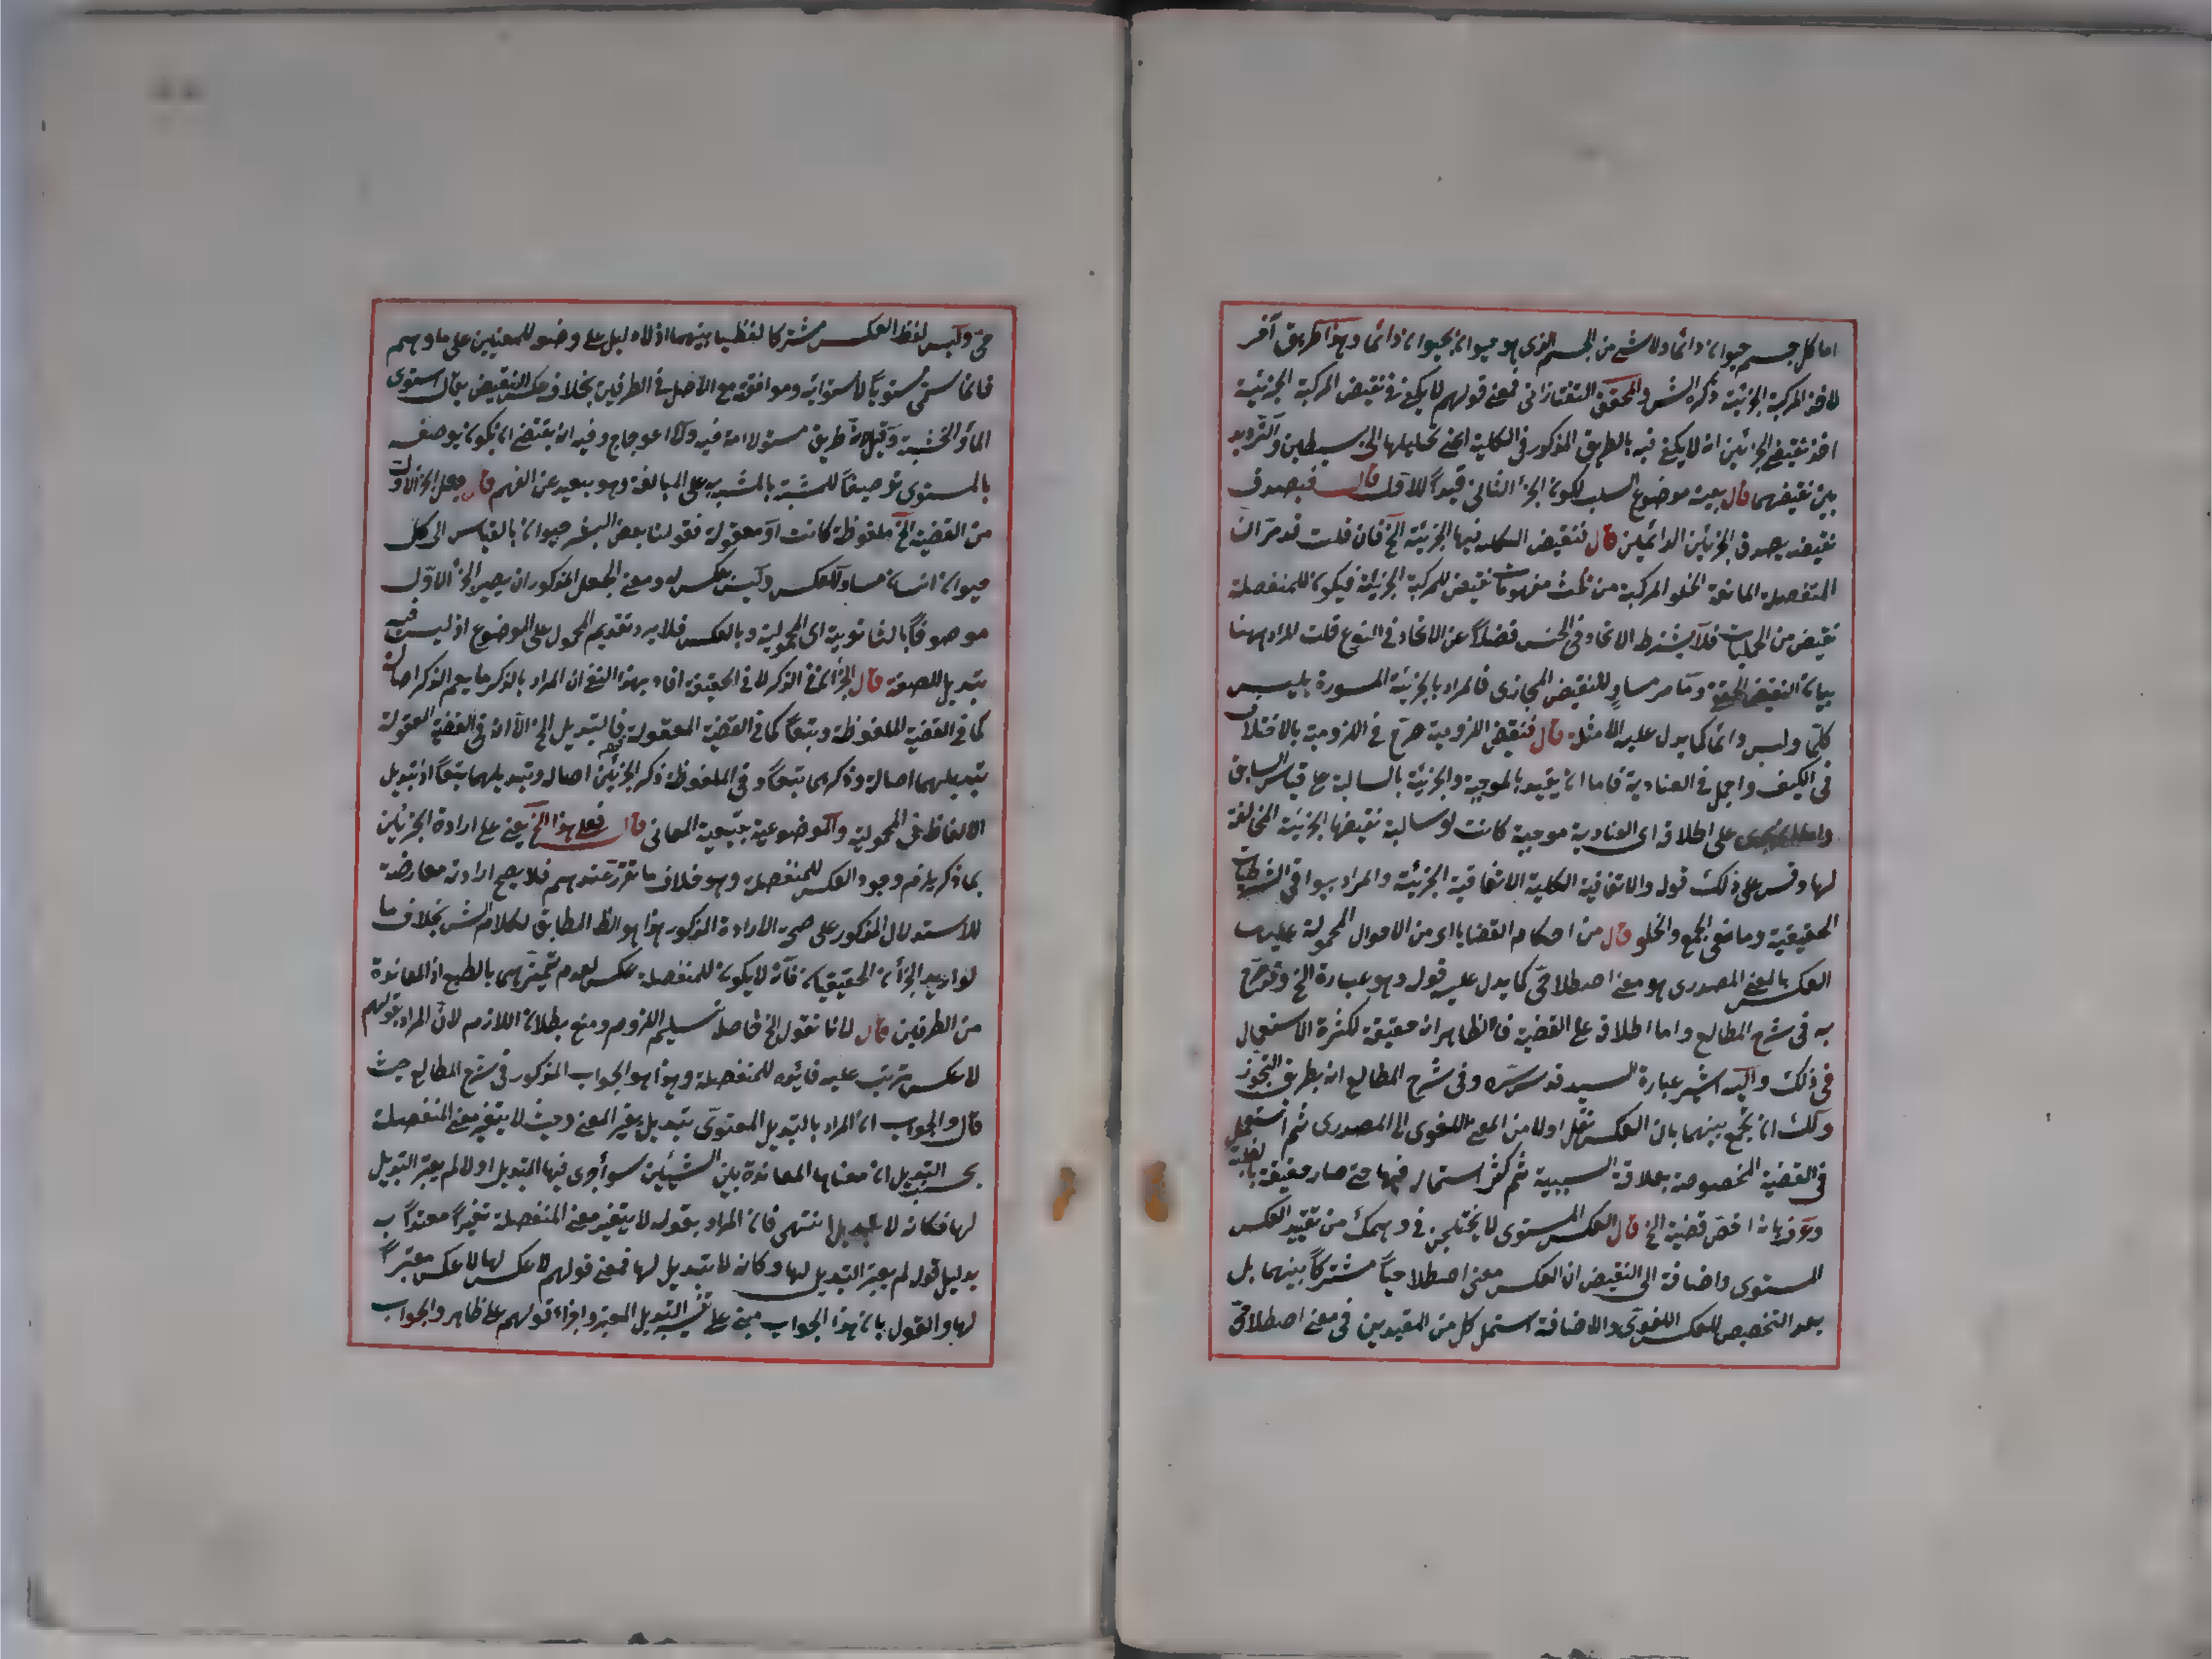 اما كل جسم حيوان دائما ولا شئ من الجسم الذى هو حيوان بحيوان دائما وهذا طريق آخر
لاخذ المركبة الجزئية ذكره الش والمحقق التفتازانى فمعنى قولهم لا يكفى فى نقيض المركبة الجزئية
اخذ نقيض الجزئين انه لا يكفى فيه بالطريق المذكور فى الكلية اعنى تحليلها الى بسيطين والترديد
بين نقيضهما قال بعينه موضوع السلب لكون الجزء الثانى قيدا للاول قال فيصدق
نقيضه بصدق الجزئين الدائمين قال فنقيض الكلية فيها الجزئية الخ فان قلت قد مر ان
المنفصلة المانعة الخلو المركبة من ثلث مفهومات نقيض للمركبة الجزئية فيكون للمنفصلة
نقيض من الحمليات فلا يشترط الاتحاد فى الجنس فضلا عن الاتحاد فى النوع قلت المراد ههنا
بيان النقيض الحقيقة وما مر مساو للنقيض المجازى فالمراد بالجزئية المسورة بليس
كلما وليس دائما كما يدل عليه الامثلة قال فنقيض اللزومية صرح فى اللزومية بالاختلاف
فى الكيف واجمل فى العنادية فاما ان يقيد بالموجبة والجزئية بالسالبة على قياس السابق
على اطلاقه اى العنادية موجبة كانت او سالبة نقيضها الجزئية المخالفة
لها وقس على ذلك قوله والاتفاقية الكلية الاتفاقية الجزئية والمراد ببواقى الشرطيات
الحقيقية ومانعى الجمع والخلو قال من احكام القضايا اى من الاحوال المحمولة عليها
العكس بالمعنى المصدرى هو معنى اصطلاحى كما يدل عليه قوله وهو عبارة الخ وقد صرح
به فى شرح المطالع واما اطلاقه على القضية فالظاهر انه حقيقة لكثرة الاستعمال
فى ذلك واليه اشير عبارة السيد قدس سره وفى شرح المطالع انه بطريق التجوز
ولك ان تجمع بينهما بان العكس نقل اولا من المعنى اللغوى الى المصدرى ثم استعمل
فى القضية المخصوصة بعلاقة السببية ثم كثر استعماله فيها حتى صار حقيقة بالغلبة
وعرفها بانه اخص قضية الخ قال العكس المستوى لا يختلجن فى وهمك من تقييد العكس
المستوى واضافته الى النقيض ان العكس معنى اصطلاحيا مشتركا بينهما بل
بعد التخصيص للعكس اللغوى والاضافة استعمل كل من المقيدين فى معنى اصطلاحى
حى وليس لفظ العكس مشتركا لفظيا بينهما اذ لا دليل على وضعه للمعنيين على ما وهم
فانما سمى مستويا لاستوائه وموافقته مع الاصل فى الطرفين بخلاف عكس النقيض يقال استوى
الماء والخشبة وقيل طريق مستو لا امت فيه ولا اعوجاج وفيه انه يقتضى ان يكون توصيفه
بالمستوى توصيفا للمشبه بالمشبه به على المبالغة وهو بعيد عن الفهم قال جعل الجزء الاول
من القضية الخ ملفوظة كانت او معقولة فقولنا بعض البشر حيوان بالقياس الى كل
حيوان انسان مساو للعكس وليس بعكس له ومعنى الجعل المذكور ان يصير الجزء الاول
موصوفا بالثانوية اى المحمولية وبالعكس فلا يرد تقديم المحول على الموضوع اذ ليس فيه
تبديل للصفة قال الجزآن فى الذكر لا فى الحقيقة افاد بهذا النفى ان المراد بالذكر ما يعم الذكر اصالة
كما فى القضية الملفوظة وتبعا كما فى القضية المعقولة فالتبديل الخ الا ان فى القضية المعقولة
تبديلهما اصالة وذكرهما تبعا وفى الملفوظة ذكر الجزئين اصالة وتبديلهما تبعا اذ تبديل
الالفاظ فى المحمولية والموضوعية بتبعية المعانى قال فعلى هذا الخ يعنى على ارادة الجزئين
بما ذكر يلزم وجود العكس للمنفصلة وهو خلاف ما تقرر عندهم فلا يصح ارادته معارضة
للاستدلال المذكور على صحة الارادة المذكور هذا هو الظ المطابق لكلام الش بخلاف ما
لو اريد الجزآن الحقيقيان فانه لا يكون للمنفصلة عكس لعدم تميزهما بالطبع اذ المعاندة
من الطرفين قال لانا نقول الخ حاصله تسليم اللزوم ومنع بطلان اللازم لان المراد بقولهم
لا عكس يترتب عليه فائدة للمنفصلة وهذا هو الجواب المذكور فى شرح المطالع حيث
قال والجواب ان المراد بالتبديل المعنوى تبديل يغير المعنى وحيث لا يتغير معنى المنفصلة
بحسب التبديل ان معناها المعاندة بين الشيئين سواء جرى فيها التبديل اولا لم يعتبر التبديل
لها فكانه لا تبديل انتهى فان المراد بقوله لا يتغير معنى المنفصلة تغييرا معتدا به
بدليل قوله لم يعتبر التبديل لها وكانه لا تبديل لها فمعنى قولهم لا عكس لها لا عكس معتبرا
لها والقول بان هذا الجواب مبنى على تفسير التبديل المعتبر واجراء قولهم على ظاهره والجواب